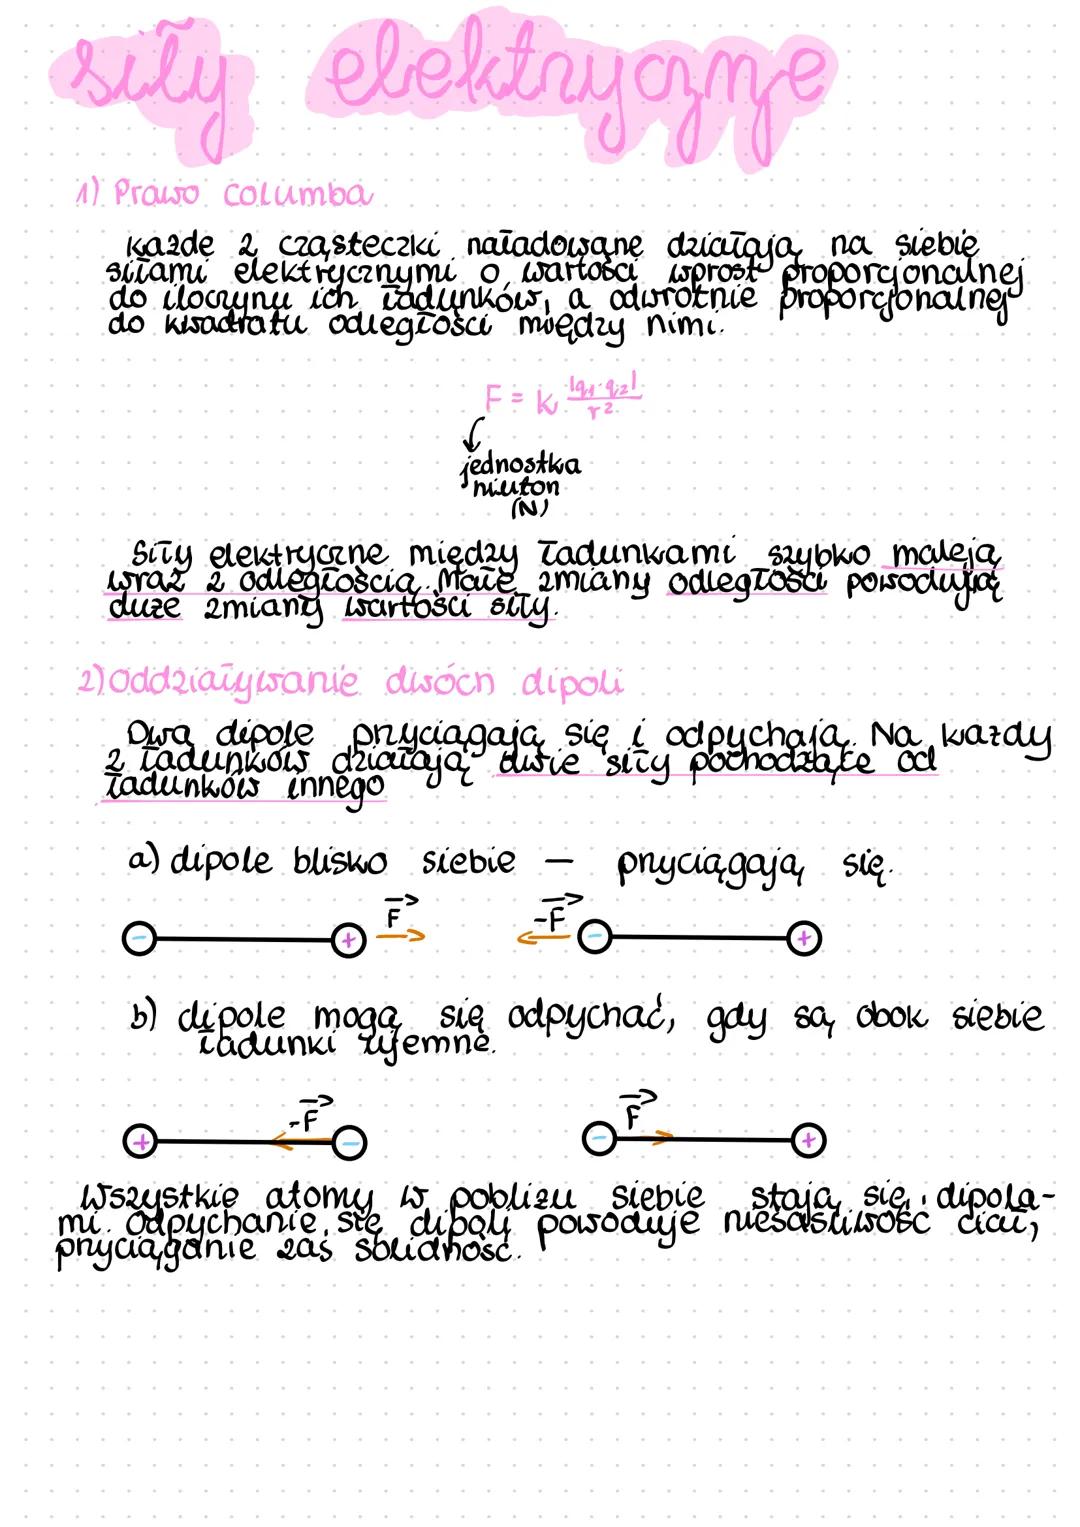 siły elektryczne
1) Prawo columba
każde 2 cząsteczki naładowane działają na siebie
siłami elektrycznymi o wartości wprost proporcjonalnej
do iloczynu ich ładunków, a odwrotnie proporcjonalnej
do kwadratu odległości między nimi.
F = k |q₁·q₂| / r²
jednostka
niuton
(N)
Siły elektryczne między ładunkami szybko maleją
wraz z odległością. Małe zmiany odległości powodują
duże zmiany wartości siły.
2) Oddziaływanie dwóch dipoli
Dwa dipole przyciągają się i odpychają. Na każdy
z ładunków działają dwie siły pochodzące od
ładunków innego
a) dipole blisko siebie – przyciągają się.
F -F
- + - +
b) dipole mogą się odpychać, gdy są obok siebie
ładunki ujemne.
-F F
+ - - +
Wszystkie atomy w pobliżu siebie stają się dipola-
mi. Odpychanie się dipoli powoduje nieściśliwość ciał,
przyciąganie zaś solidność.